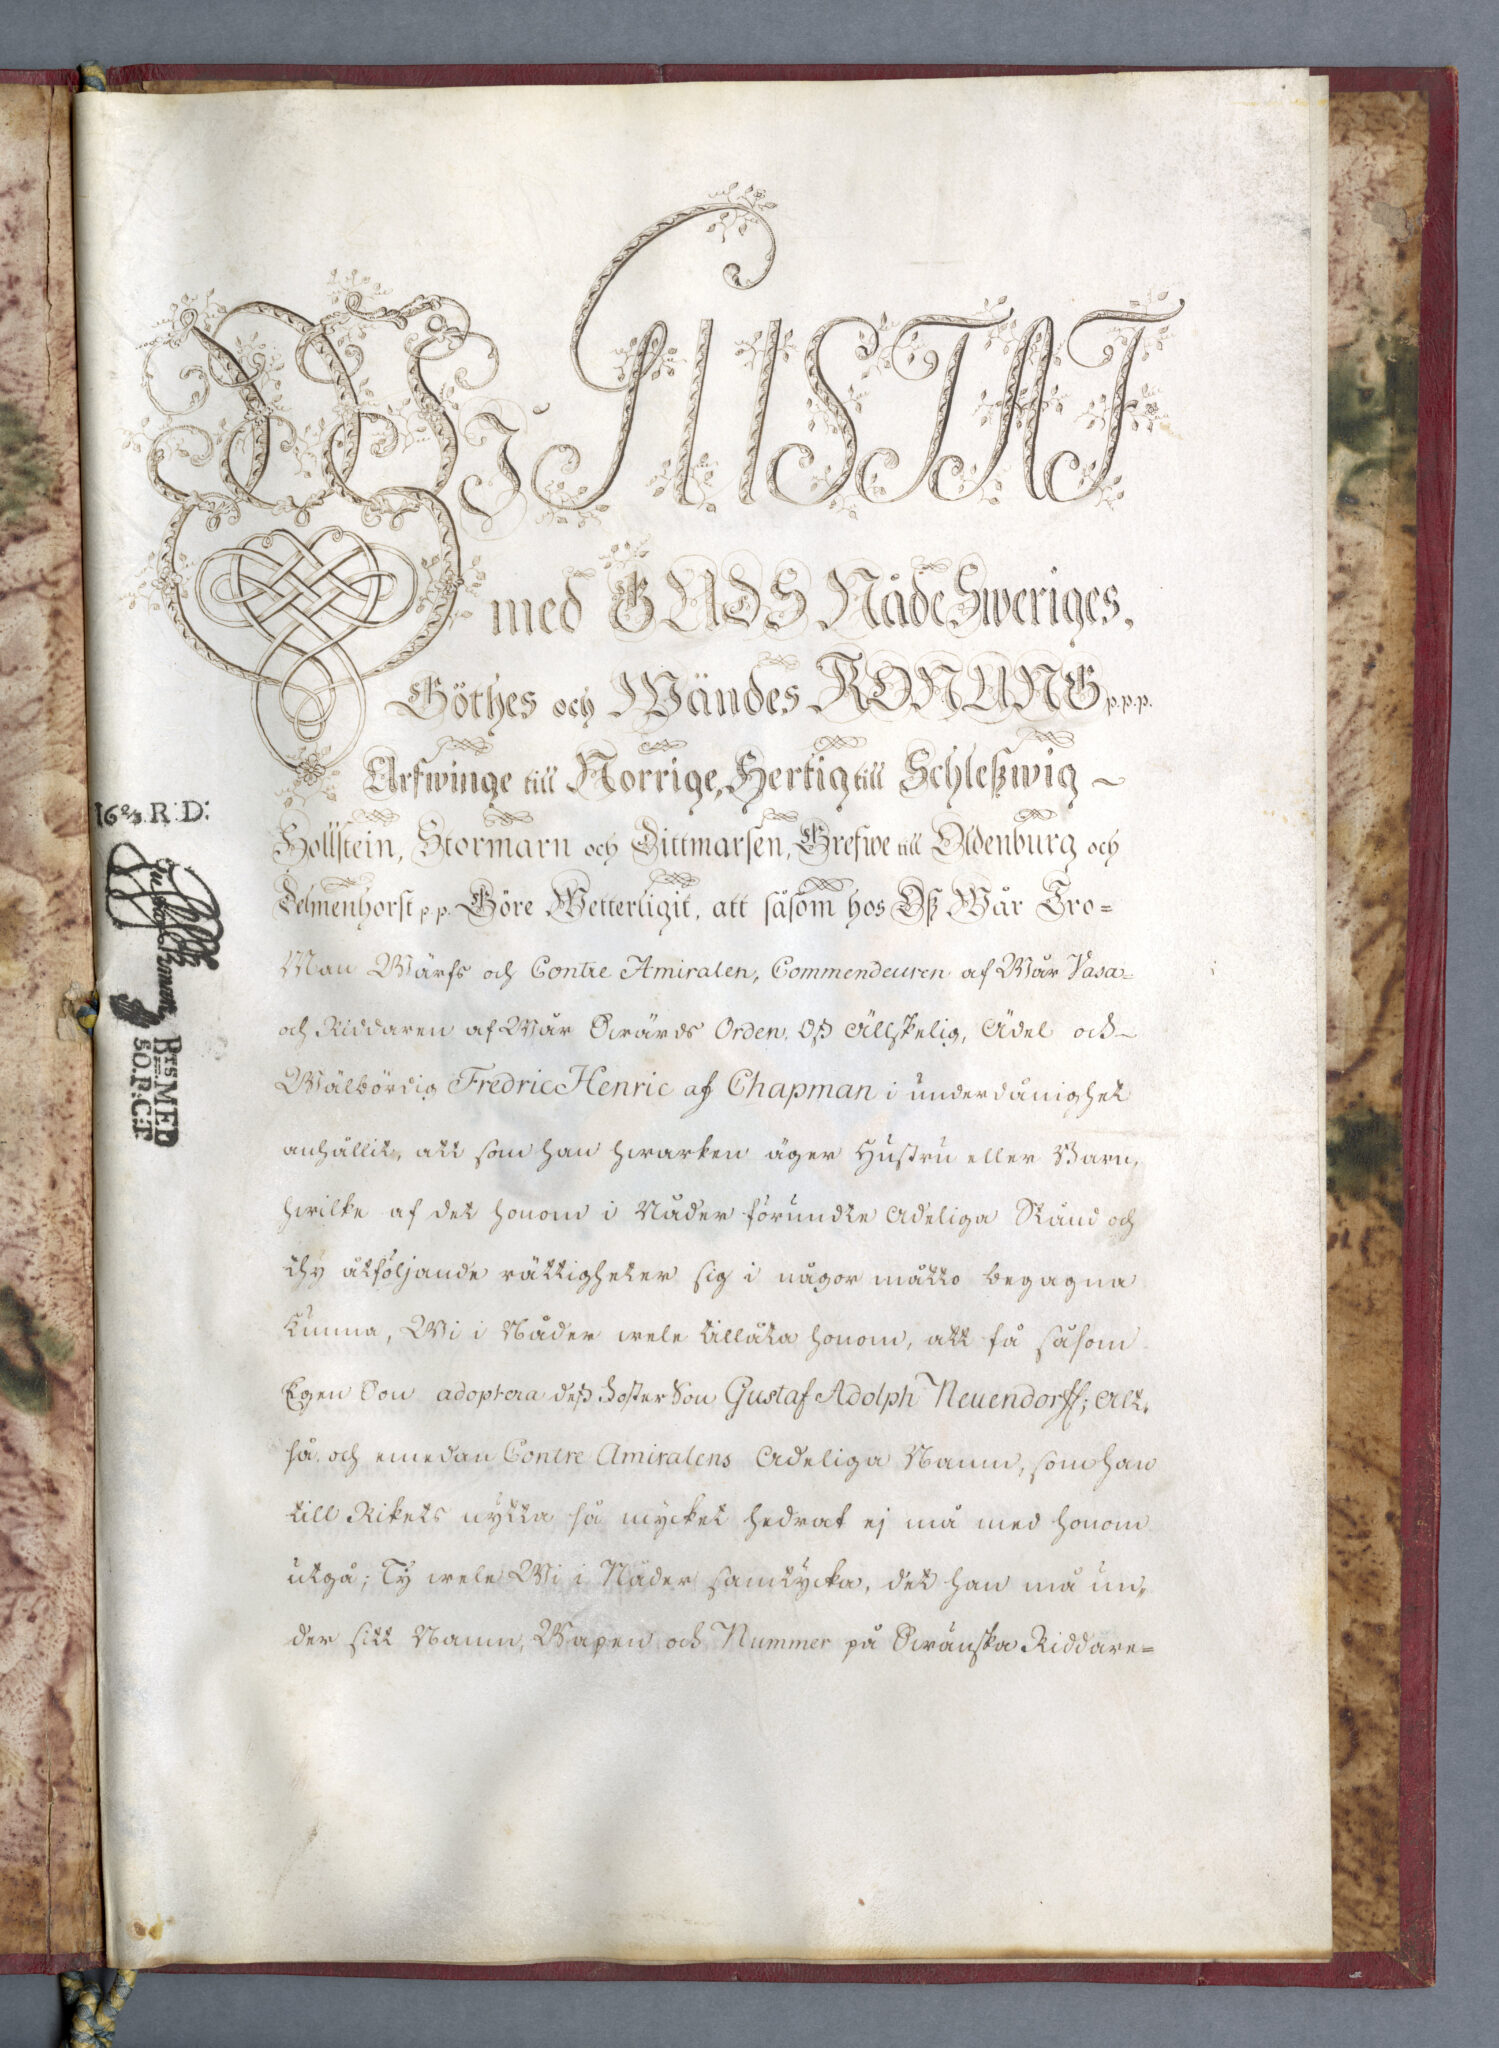 Wi GUSTAF
med GUDS Nåde Sweriges,
Göthes och Wändes KONUNG p.p.p.
Arfwinge till Norrige, Hertig till Schleßwig ~
Hollstein, Stormarn och Dittmarsen, Grefwe till Oldenburg och
Delmenhorst p.p. Göre Wetterligit, att såsom hos Oß Wår Tro=
Man Wärfs och Contre Amiralen, Commendeuren af Wår Vasa-
och Riddaren af Wår Swärds Orden, Oß Ällskelig, Ädel och
Wälbördig Fredric Henric af Chapman i underdånighet
anhållit, att som han hwarken äger Hustru eller Barn,
hwilke af det honom i Nåder förundte Adeliga Stånd och
thy åtföljande rättigheter sig i någor måtto begagna
kunna, Wi i Nåder wele tillåta honom, att få såsom
Egen Son adoptera deß Syster Son Gustaf Adolph Neuendorff; Alt,
så, och emedan Contre Amiralens Adeliga Namn, som han
till Rikets nytta så mycket hedrat ej må med honom
utgå; Ty wele Wi i Nåder samtycka, det han må un,,
der sitt Namn, Wapen och Nummer på Swänska Riddare=
R: D:
MED
S.O.P:C:T